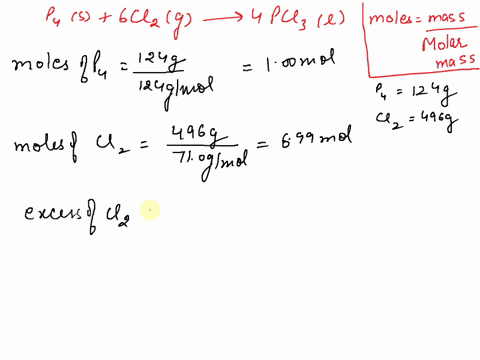 P4 (s) + 6Cl2 (g) → 4 PCl3 (l)
moles = mass / Molar mass
moles of P4 = 124g / 124g/mol = 1.00 mol
P4 = 124g
Cl2 = 496g
moles of Cl2 = 496g / 71.0g/mol = 6.99 mol
excess of Cl2